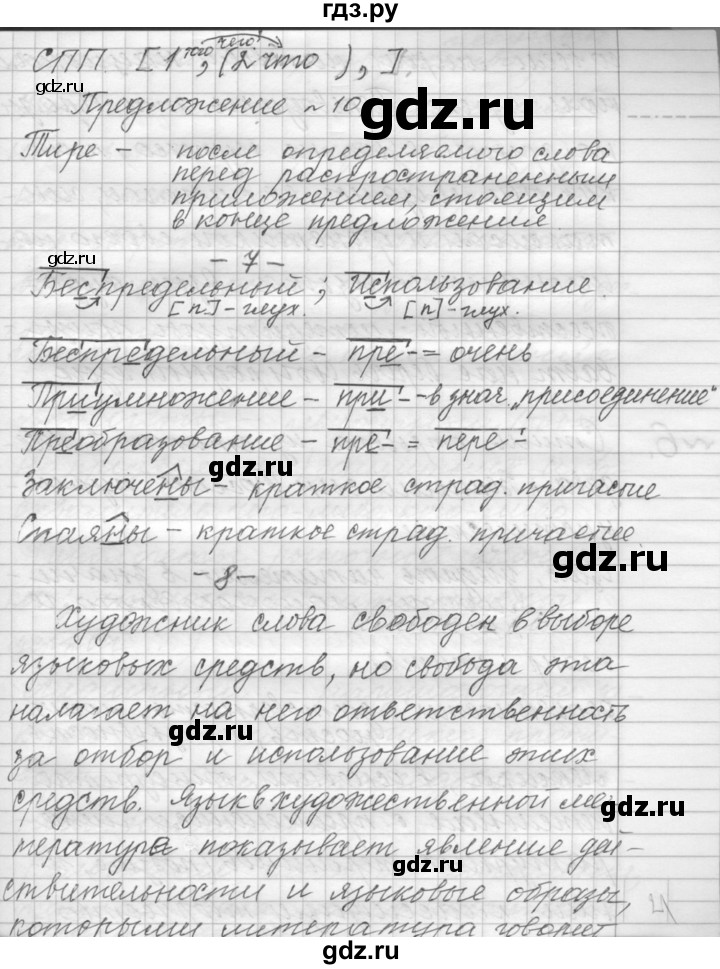 гдз.ру
того, чего?
СПП [1 , (2 что ), ].
gdz.ru
Предложение ~ 10
gdz.ru
Тире – после определяемого слова
перед распространенным
приложением, стоящим
в конце предложения.
gdz.ru
– 7 –
Беспредельный; Использование.
[п]-глух. [п]-глух.
gdz.ru
Беспредельный – пре- = очень
Приумножение – при- – в знач. „присоединение"
Преобразование – пре- = пере-
gdz.ru
Заключены – краткое страд. причастие
Спаяны – краткое страд. причастие.
gdz.ru
– 8 –
Художник слова свободен в выборе
языковых средств, но свобода эта
налагает на него ответственность
gdz.ru
за отбор и использование этих
средств. Язык в художественной ли-
gdz.ru
тературе показывает явление дей-
gdz.ru
ствительности и языковые образы,
которыми литература говорит
gdz.ru